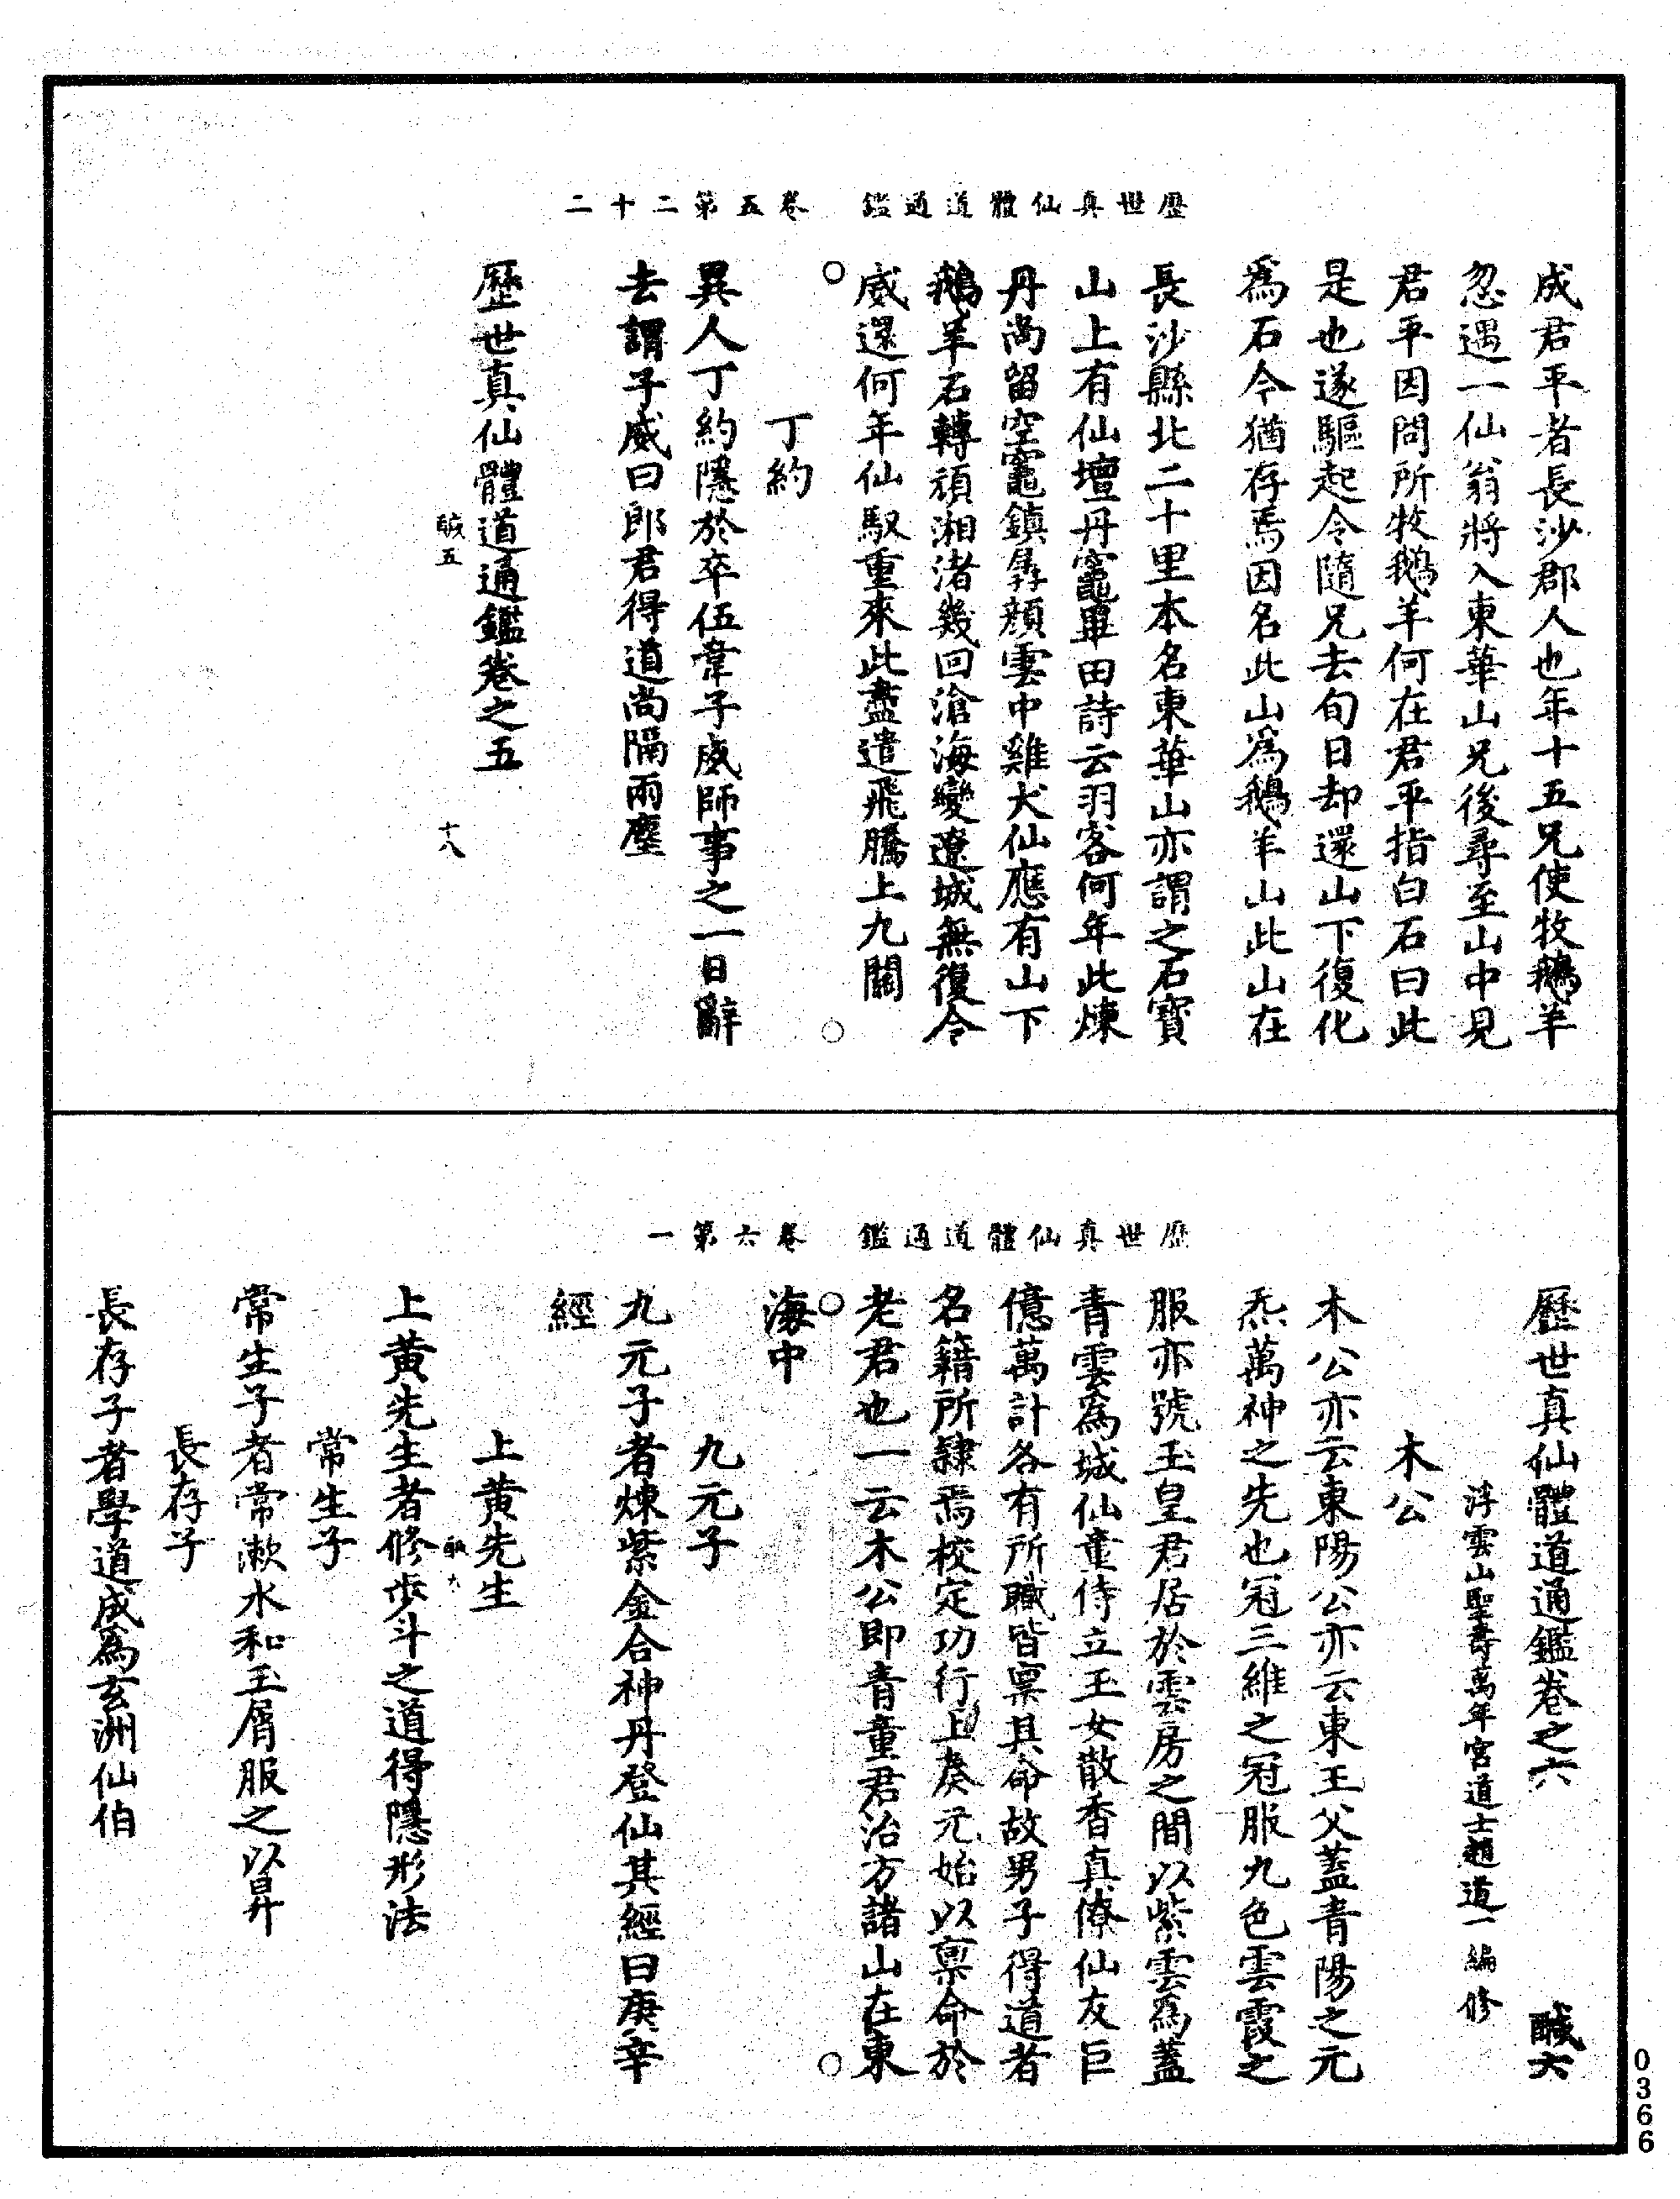 歷世真仙體道通鑑　卷五第二十二
成君平者長沙郡人也年十五兄使牧鵝羊
忽遇一仙翁將入東華山兄後尋至山中見
君平因問所牧鵝羊何在君平指白石曰此
是也遂驅起令隨兄去旬日却還山下復化
爲石今猶存焉因名此山爲鵝羊山此山在
長沙縣北二十里本名東華山亦謂之石寶
山上有仙壇丹竈畢田詩云羽客何年此煉
丹尚留空竈鎮孱顔雲中雞犬仙應有山下
鵝羊石轉頑湘渚幾回滄海變遼城無復令
威還何年仙馭重來此盡遣飛騰上九關
丁約
異人丁約隱於卒伍韋子威師事之一日辭
去謂子威曰郎君得道尚隔兩塵
歷世真仙體道通鑑卷之五
醎五　十八
歷世真仙體道通鑑　卷六第一
歷世真仙體道通鑑卷之六　醎六
浮雲山聖壽萬年宮道士趙道一編修
木公
木公亦云東陽公亦云東王父蓋青陽之元
炁萬神之先也冠三維之冠服九色雲霞之
服亦號玉皇君居於雲房之間以紫雲爲蓋
青雲爲城仙童侍立玉女散香真僚仙友巨
億萬計各有所職皆稟其命故男子得道者
名籍所隸焉校定功行上奏元始以稟命於
老君也一云木公即青童君治方諸山在東
海中
九元子
九元子者煉紫金合神丹登仙其經曰庚辛
經
上黄先生
上黄先生者修步斗之道得隱形法
常生子
常生子者常漱水和玉屑服之以昇
長存子
長存子者學道成爲玄洲仙伯
0366